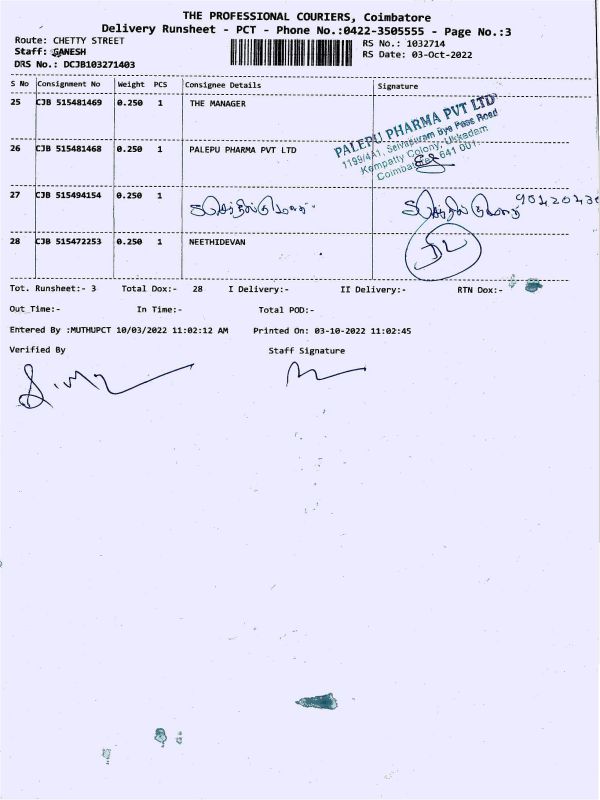 THE PROFESSIONAL COURIERS, Coimbatore
Delivery Runsheet - PCT - Phone No.:0422-3505555 - Page No.:3
Route: CHETTY STREET
RS No.: 1032714
Staff: GANESH
RS Date: 03-Oct-2022
DRS No.: DCJB103271403
S No Consignment No Weight PCS Consignee Details Signature
25 CJB 515481469 0.250 1 THE MANAGER
PALEPU PHARMA PVT LTD
1199/4A1, Selvapuram Bye Pass Road
Kempatty Colony, Ukkadam
Coimbatore 641 001
26 CJB 515481468 0.250 1 PALEPU PHARMA PVT LTD
27 CJB 515494154 0.250 1
28 CJB 515472253 0.250 1 NEETHIDEVAN
Tot. Runsheet:- 3 Total Dox:- 28 I Delivery:- II Delivery:- RTN Dox:-
Out Time:- In Time:- Total POD:-
Entered By :MUTHUPCT 10/03/2022 11:02:12 AM Printed On: 03-10-2022 11:02:45
Verified By Staff Signature